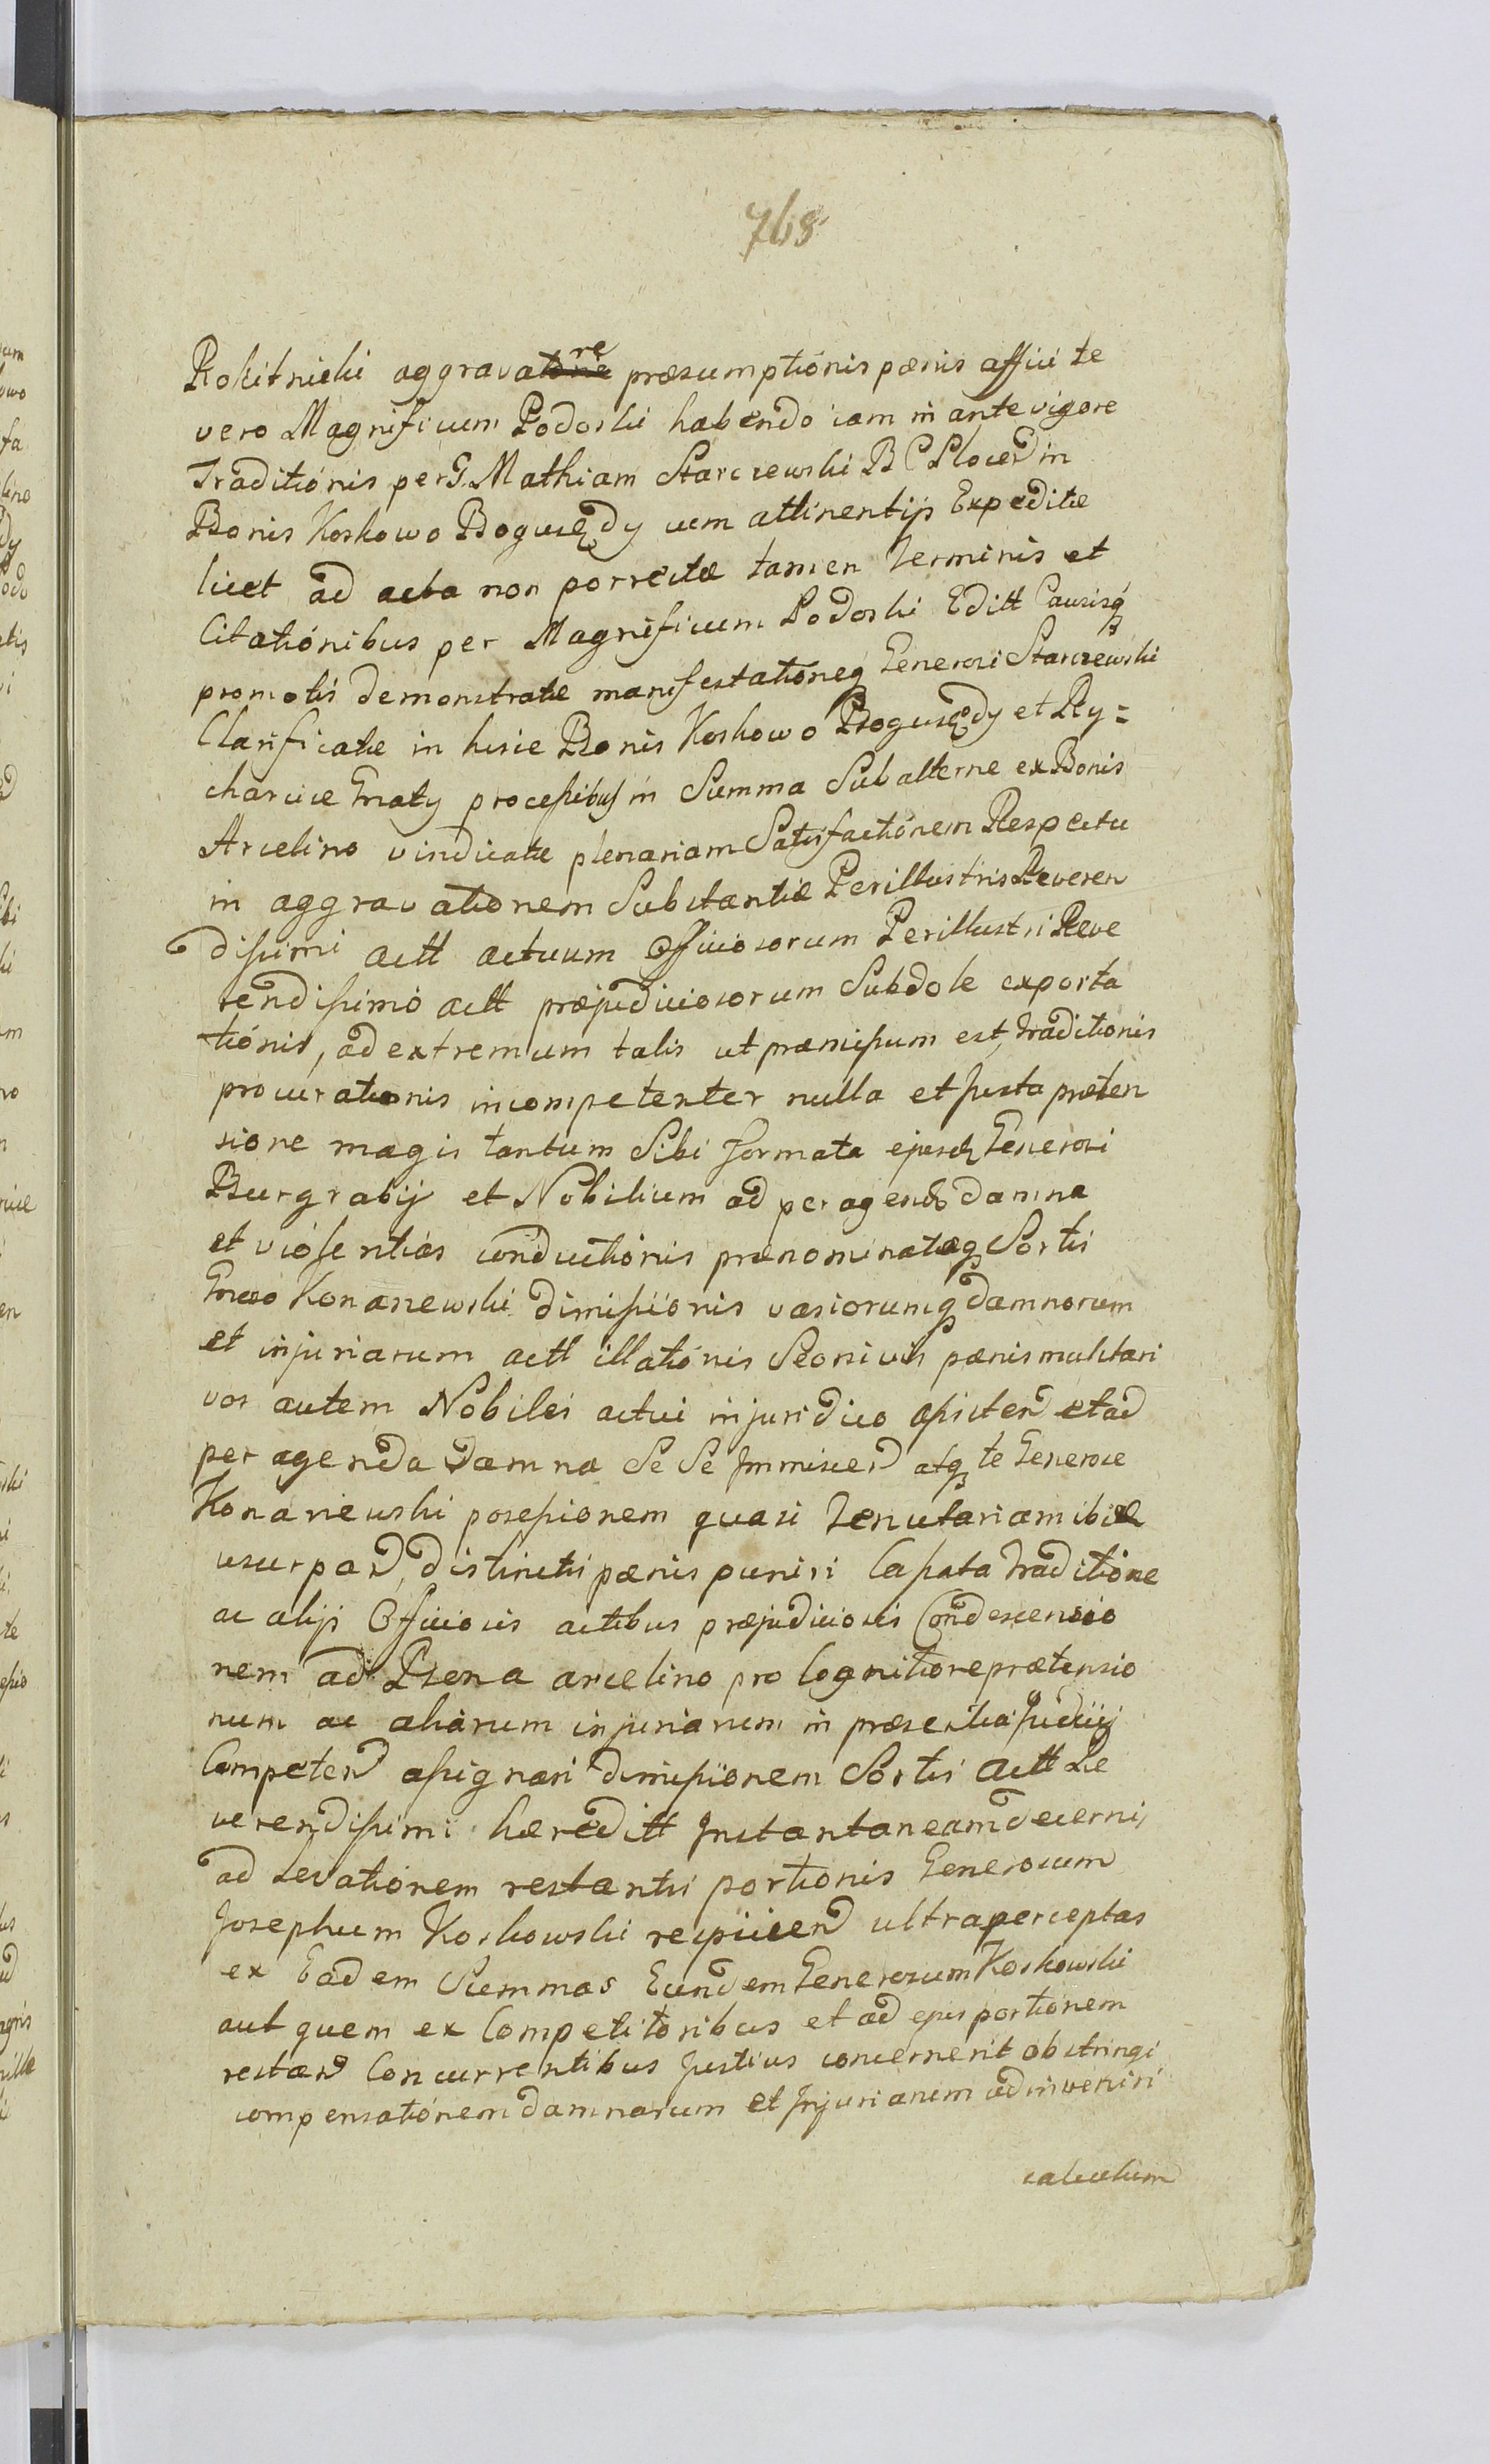 768
Rokitnicki aggravatore præsumptionis pœnis affici te
vero Magnificum Podoski habendo iam in ante vigore
Traditionis per G. Mathiam Starczewski B C Plocen in
Bonis Koskowo Bogucędy cum attinentijs Expeditæ
licet ad acta non porrectæ tamen Terminis et
Citationibus per Magnificum Podoski Editt Causisq
promotis demonstratæ manifestationeq Generosi Starczewski
Clarificatæ in hisce Bonis Koskowo Bogucędy et Ry=
charcice Gnatÿ processibus in Summa Subalterne ex Bonis
Arcelino vindicatæ plenariam Satisfactionem Respectu
in aggravationem Substantiæ Perillustris Reveren
dissimi actt actuum Officiosorum Perillustri Reve
rendissimo actt præjudiciosorum Subdole exporta
tionis, ad extremum talis ut præmissum est, traditionis
procurationis incompetenter nulla et Justa præten
sione magis tantum Sibi formata ejusd Generosi
Burgrabij et Nobilium ad peragenda damna
et violentias conductionis prænominatæq Sortis
Gnoso Konarzewski dimissionis variorumq damnorum
et injuriarum actt illationis Seonivis pœnis mulctari
vos autem Nobiles actui injuridico assisten et ad
peragenda damna Se Se Immiscen atq te Generose
Konarzewski possessionem quasi Tenutariam ibid
usurpan, distinctis pœnis puniri Cassata traditione
ac alijs Officiosis actibus præjudiciosis Condescensio
nem ad Bona arcelino pro Cognitione prætensio
num ac aliarum injuriarum in præsentia Judicij
Competen assignari dimissionem Sortis actt Re
verendissimi hæreditt Instantaneam decerni,
ad Levationem restantis portionis Generosum
Josephum Koskowski respicien ultra perceptas
ex Eadem Summas Eundem Generosum Koskowski
aut quem ex Competitoribus et ad ejus portionem
restan Concurrentibus Justius concernerit obstringi
compensationem damnorum et Injuriarum adinveniri
calculum